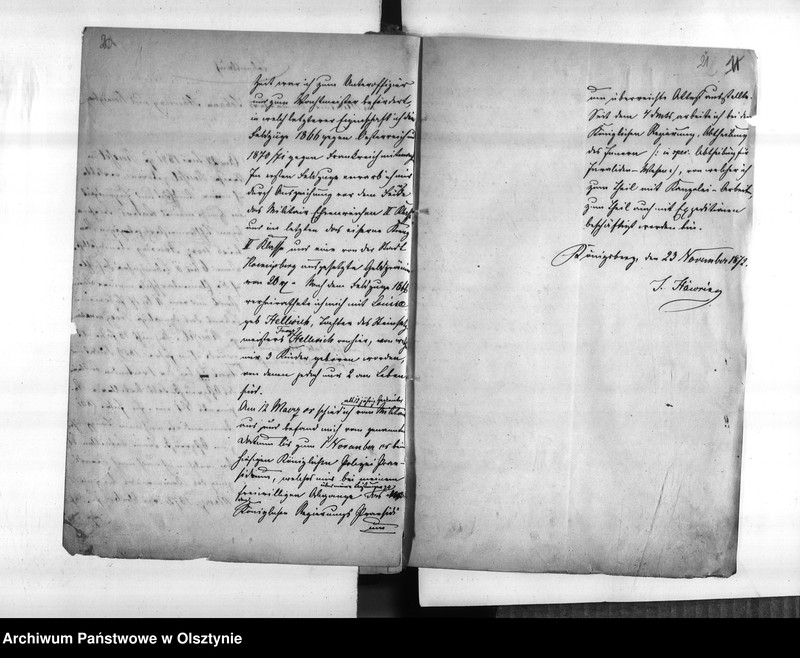 20
Zeit war ich zum Unteroffizier
und zum Wachtmeister befördert,
in welch letzterer Eigenschaft ich die
Feldzüge 1866 gegen Oesterreich u.
1870/71 gegen Frankreich mitmachte
Im ersten Feldzuge erwarb ich mir
durch Auszeichnung vor dem Feinde
das Militair Ehrenzeichen II Klasse
und im letzten das eiserne Kreuz
II Klasse und eine von der Stadt
Koenigsberg ausgesetzte Geldprämie
von 20 Nach dem Feldzuge 1866
verheirathete ich mich mit Louise
geb Hellwich, Tochter des
meisters Hellwich von hier, von
mir 3 Kinder geboren worden,
von denen jedoch nur 2 am Leben
sind.
Am 12 Maerz er schied ich vom Militair
aus und befand mich vom genannten
Datum bis zum 1 November er beim
hiesigen Königlichen Polizei Prae-
sidium, welches mir bei meinem
freiwilligen Abgange das
Königlicher Regierungs Praesidi
um
21
um überreichte Attest ausstellte.
Seit dem 7 d Mts arbeite ich bei der
Königlichen Regierung, Abtheilung
des Innern /: in spec. Abtheilung für
Invaliden-Wesen :/, von welcher ich
zum Theil mit Kanzlei-Arbeiten
zum Theil auch mit Expeditionen
beschäftigt worden bin.
Königsberg, den 23 November 187
Archiwum Państwowe w Olsztynie